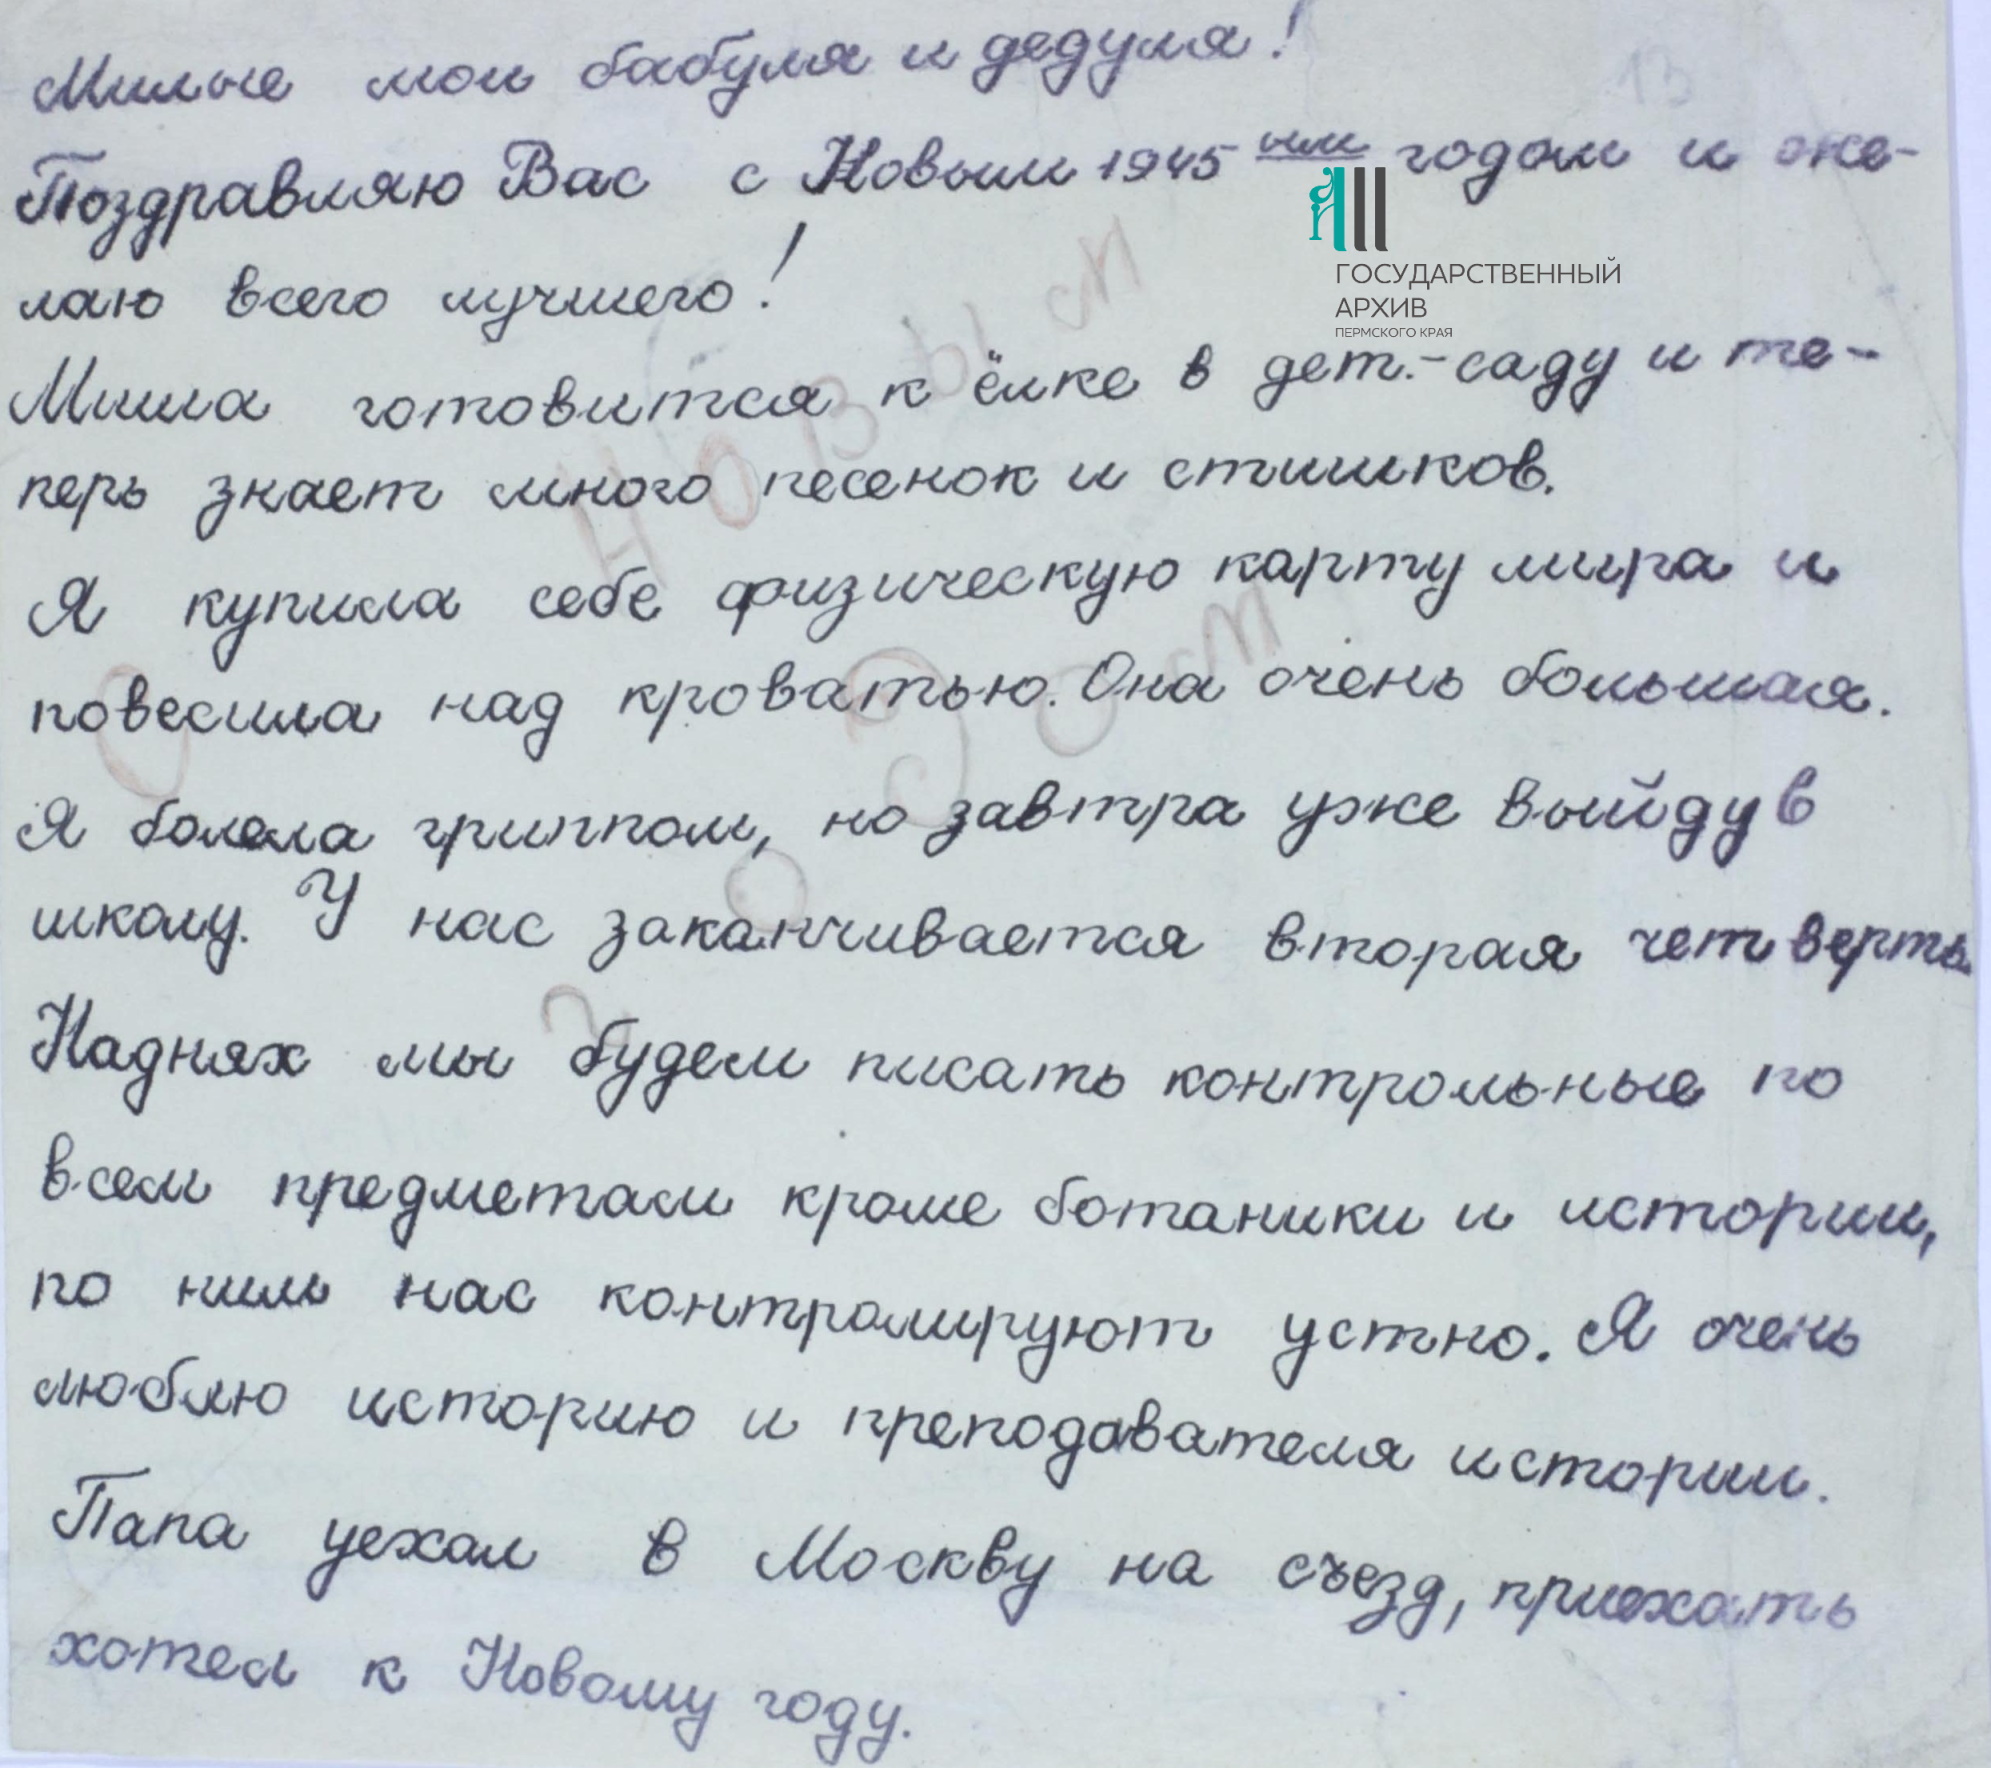 Милые мои бабуля и дедуля!
13
Поздравляю Вас с Новым 1945 ым годом и же-
лаю всего лучшего!
ГОСУДАРСТВЕННЫЙ
АРХИВ
ПЕРМСКОГО КРАЯ
Миша готовится к ёлке в дет.-саду и те-
перь знает много песенок и стишков.
Я купила себе физическую карту мира и
повесила над кроватью. Она очень большая.
Я болела гриппом, но завтра уже выйду в
школу. У нас заканчивается вторая четверть.
Наднях мы будем писать контрольные по
всем предметам кроме ботаники и истории,
по ним нас контролируют устно. Я очень
люблю историю и преподавателя истории.
Папа уехал в Москву на съезд, приехать
хотел к Новому году.
С Новым
годом